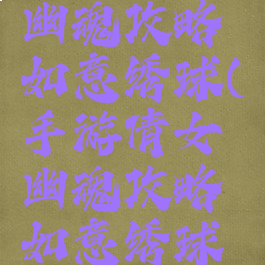 幽魂攻略
如意绣球(
手游倩女
幽魂攻略
如意绣球